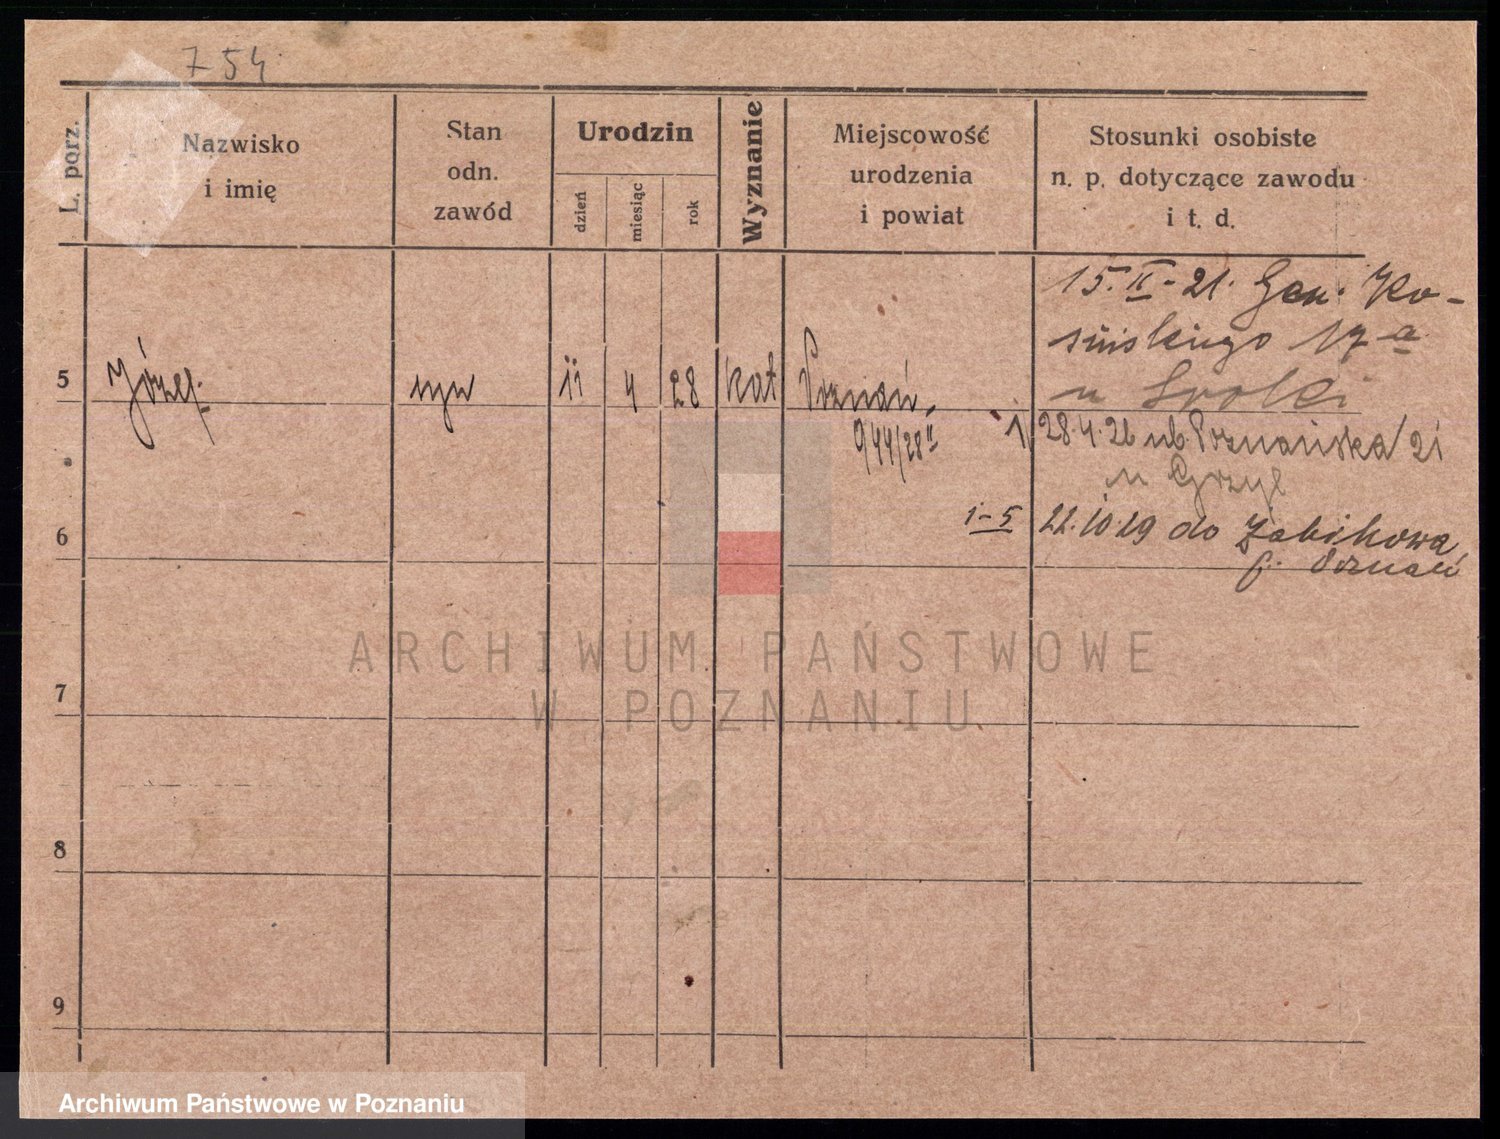 754
L. porz.
Nazwisko
i imię
Stan
odn.
zawód
Urodzin
dzień
miesiąc
rok
Wyznanie
Miejscowość
urodzenia
i powiat
Stosunki osobiste
n. p. dotyczące zawodu
i t. d.
15. II - 21. Gen. Ko-
sińskiego 17a
u
5 Józef syn 11 4 28 kat Poznań
944/28
1, 28.4.26 ul. Poznańska 21
u Grzyl
6
1-5 22.10.29 do Żabikowa
p. Poznań
ARCHIWUM PAŃSTWOWE
W POZNANIU
7
8
9
Archiwum Państwowe w Poznaniu